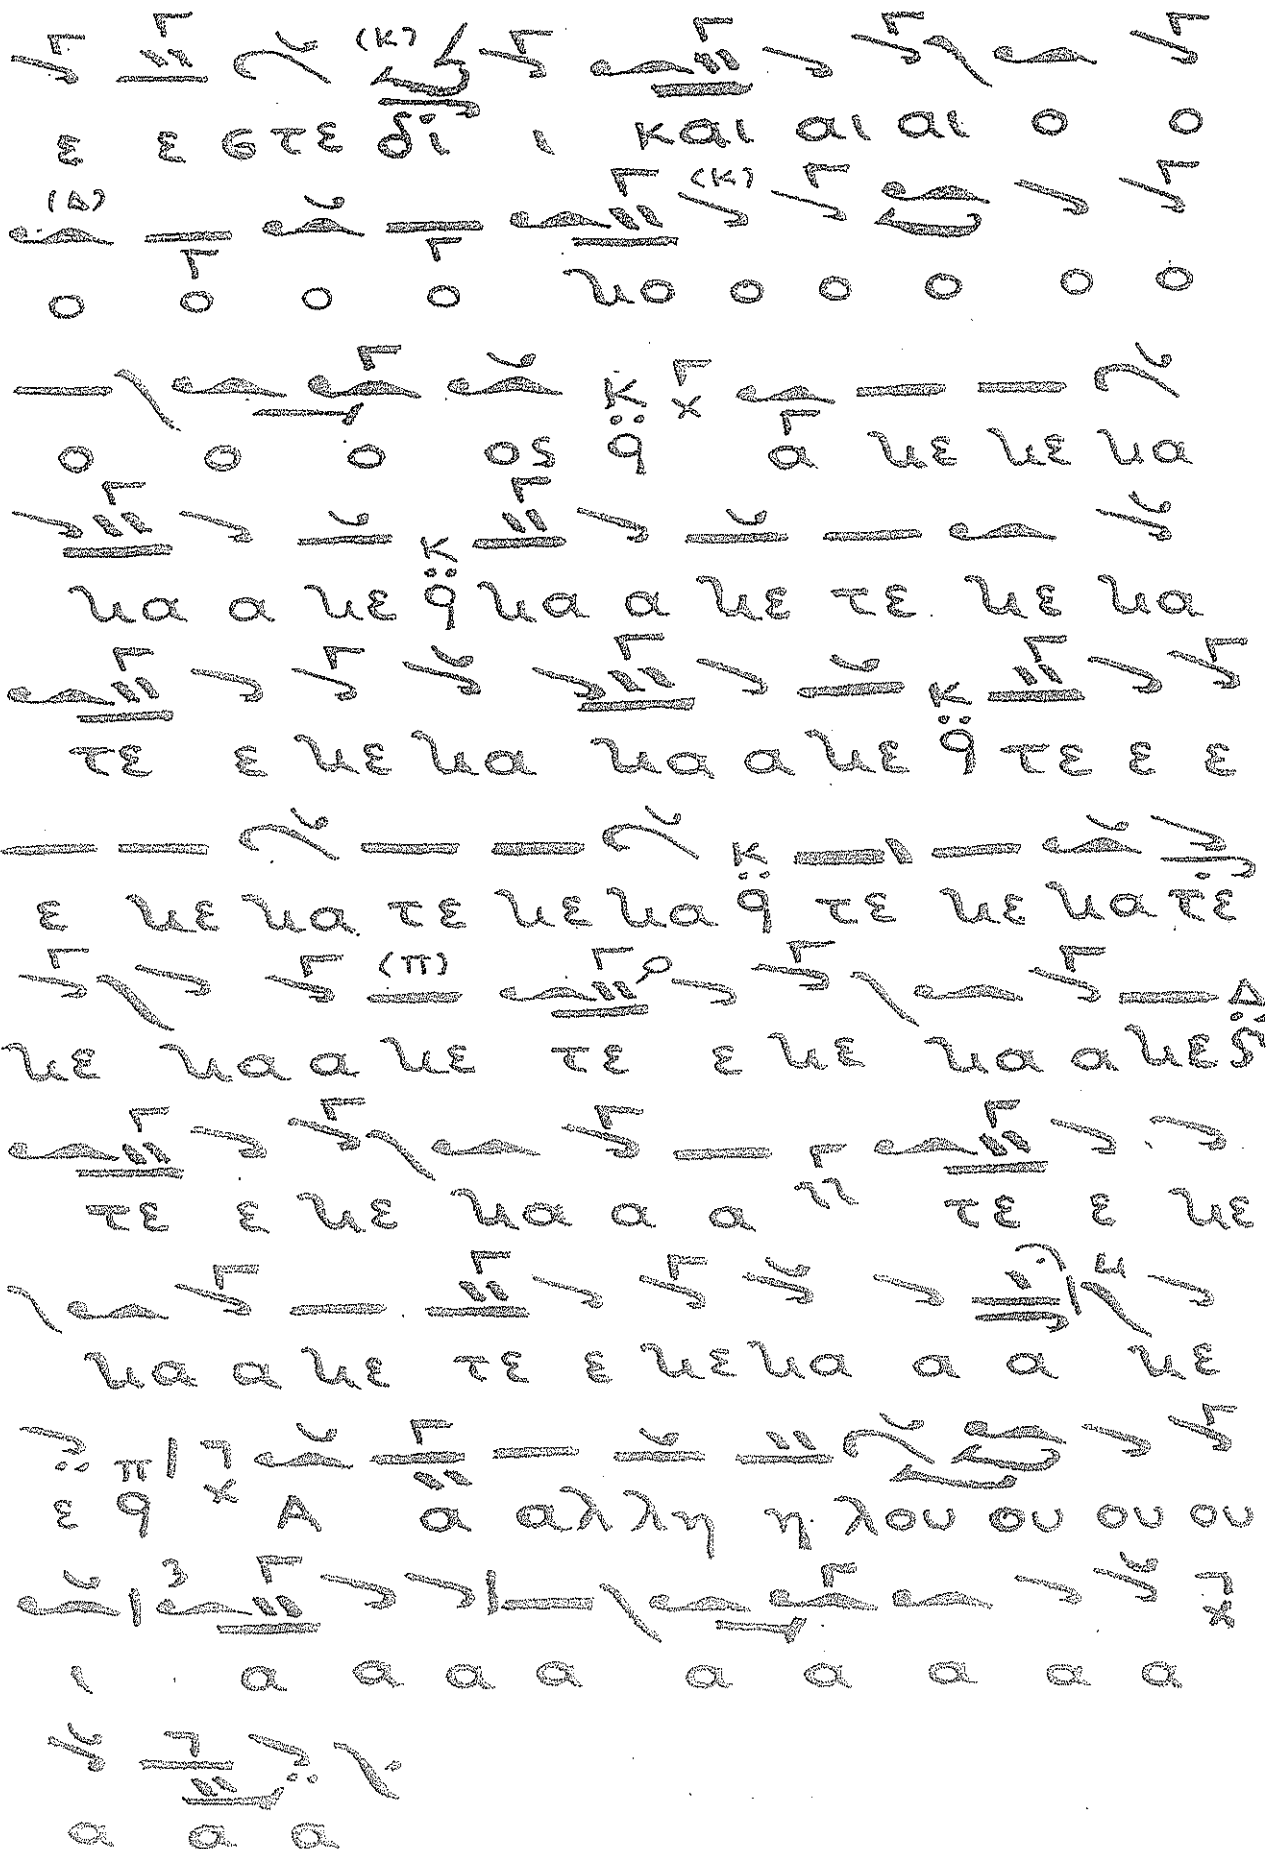 (κ)
ε ε στε δι ι και αι αι ο ο
(Δ) (κ)
ο ο ο ο νο ο ο ο ο ο
ο ο ο ος κ q α νε νε να
να α νε κ q να α νε τε νε να
τε ε νε να να α νε κ q τε ε ε
ε νε να τε νε να κ q τε νε να τε
(π)
νε να α νε τε ε νε να α νε Δ
τε ε νε να α α τε ε νε
να α νε τε ε νε να α α νε
ε π q Α α αλ λη η λου ου ου ου
ι α α α α α α α α α
α α α